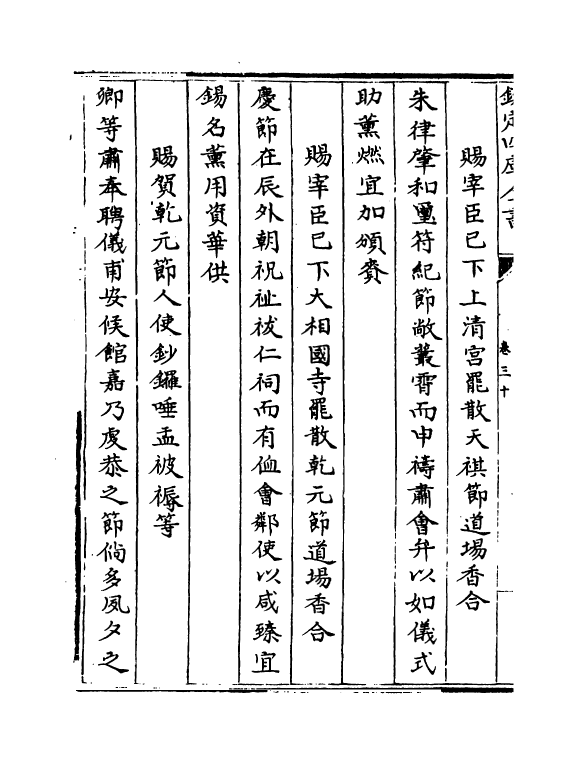 欽定四庫全書
卷三十
賜宰臣已下上清宮罷散天祺節道場香合
朱律肇和璽符紀節敞叢霄而申禱肅會弁以如儀式
助薰燃宜加頒賚
賜宰臣已下大相國寺罷散乾元節道場香合
慶節在辰外朝祝祉祓仁祠而有侐會鄰使以咸臻宜
錫名薰用資華供
賜賀乾元節人使鈔鑼唾盂被褥等
卿等肅奉聘儀甫安候館嘉乃虔恭之節倘多夙夕之